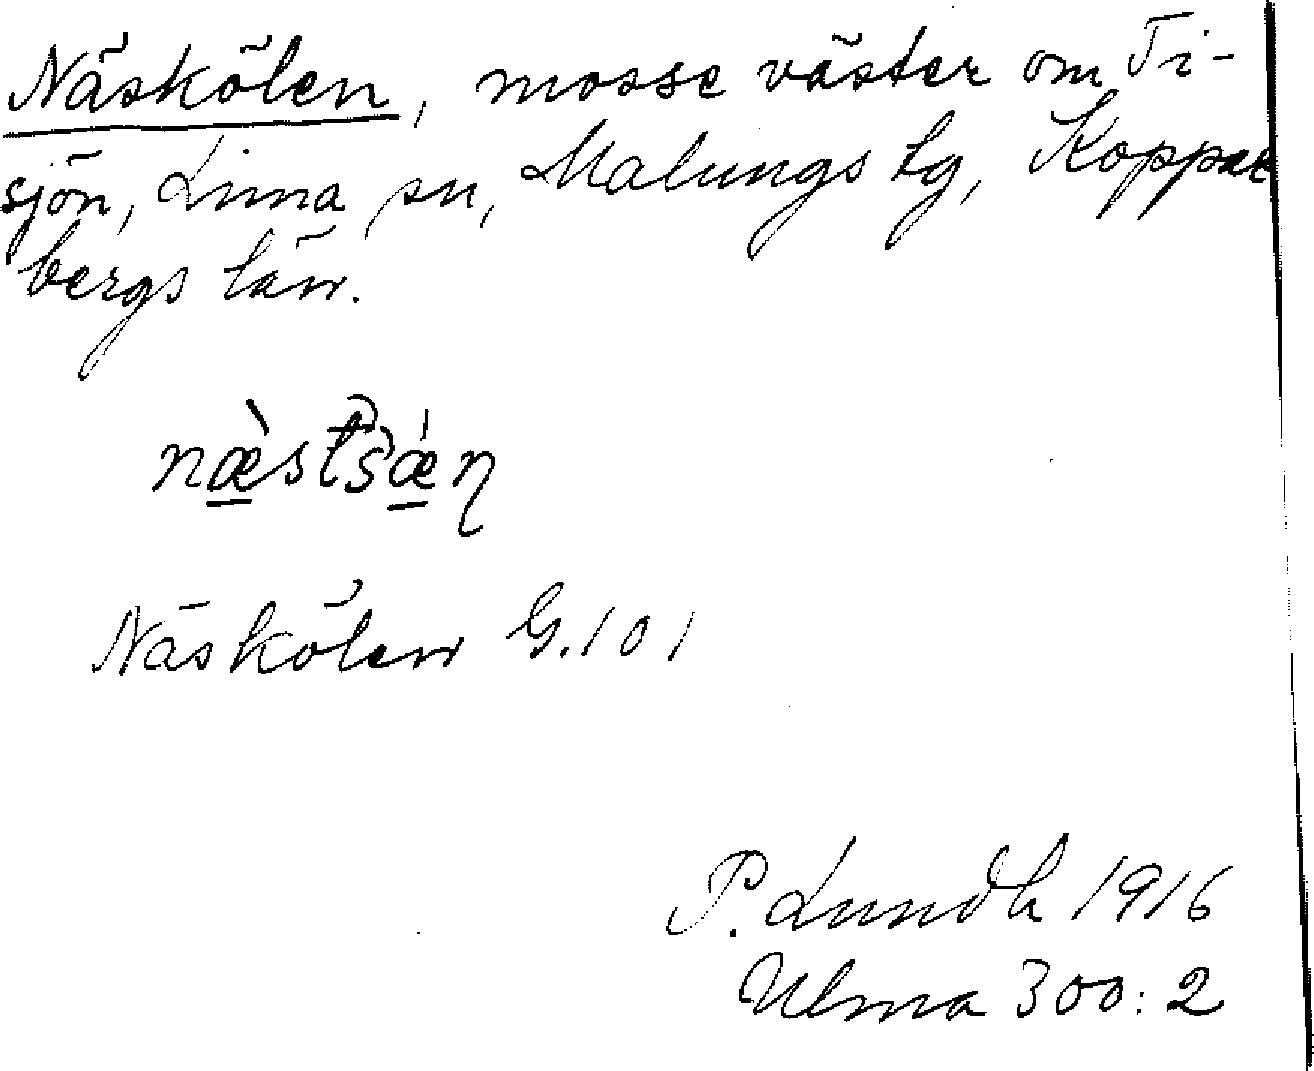 Näskölen, mosse väster om Ti-
sjön, Lima sn, Malungs tg, Koppar
bergs län.
næ̀stšǽn
Näskölen G. 101
P. Lundh 1916
Ulma 300:2